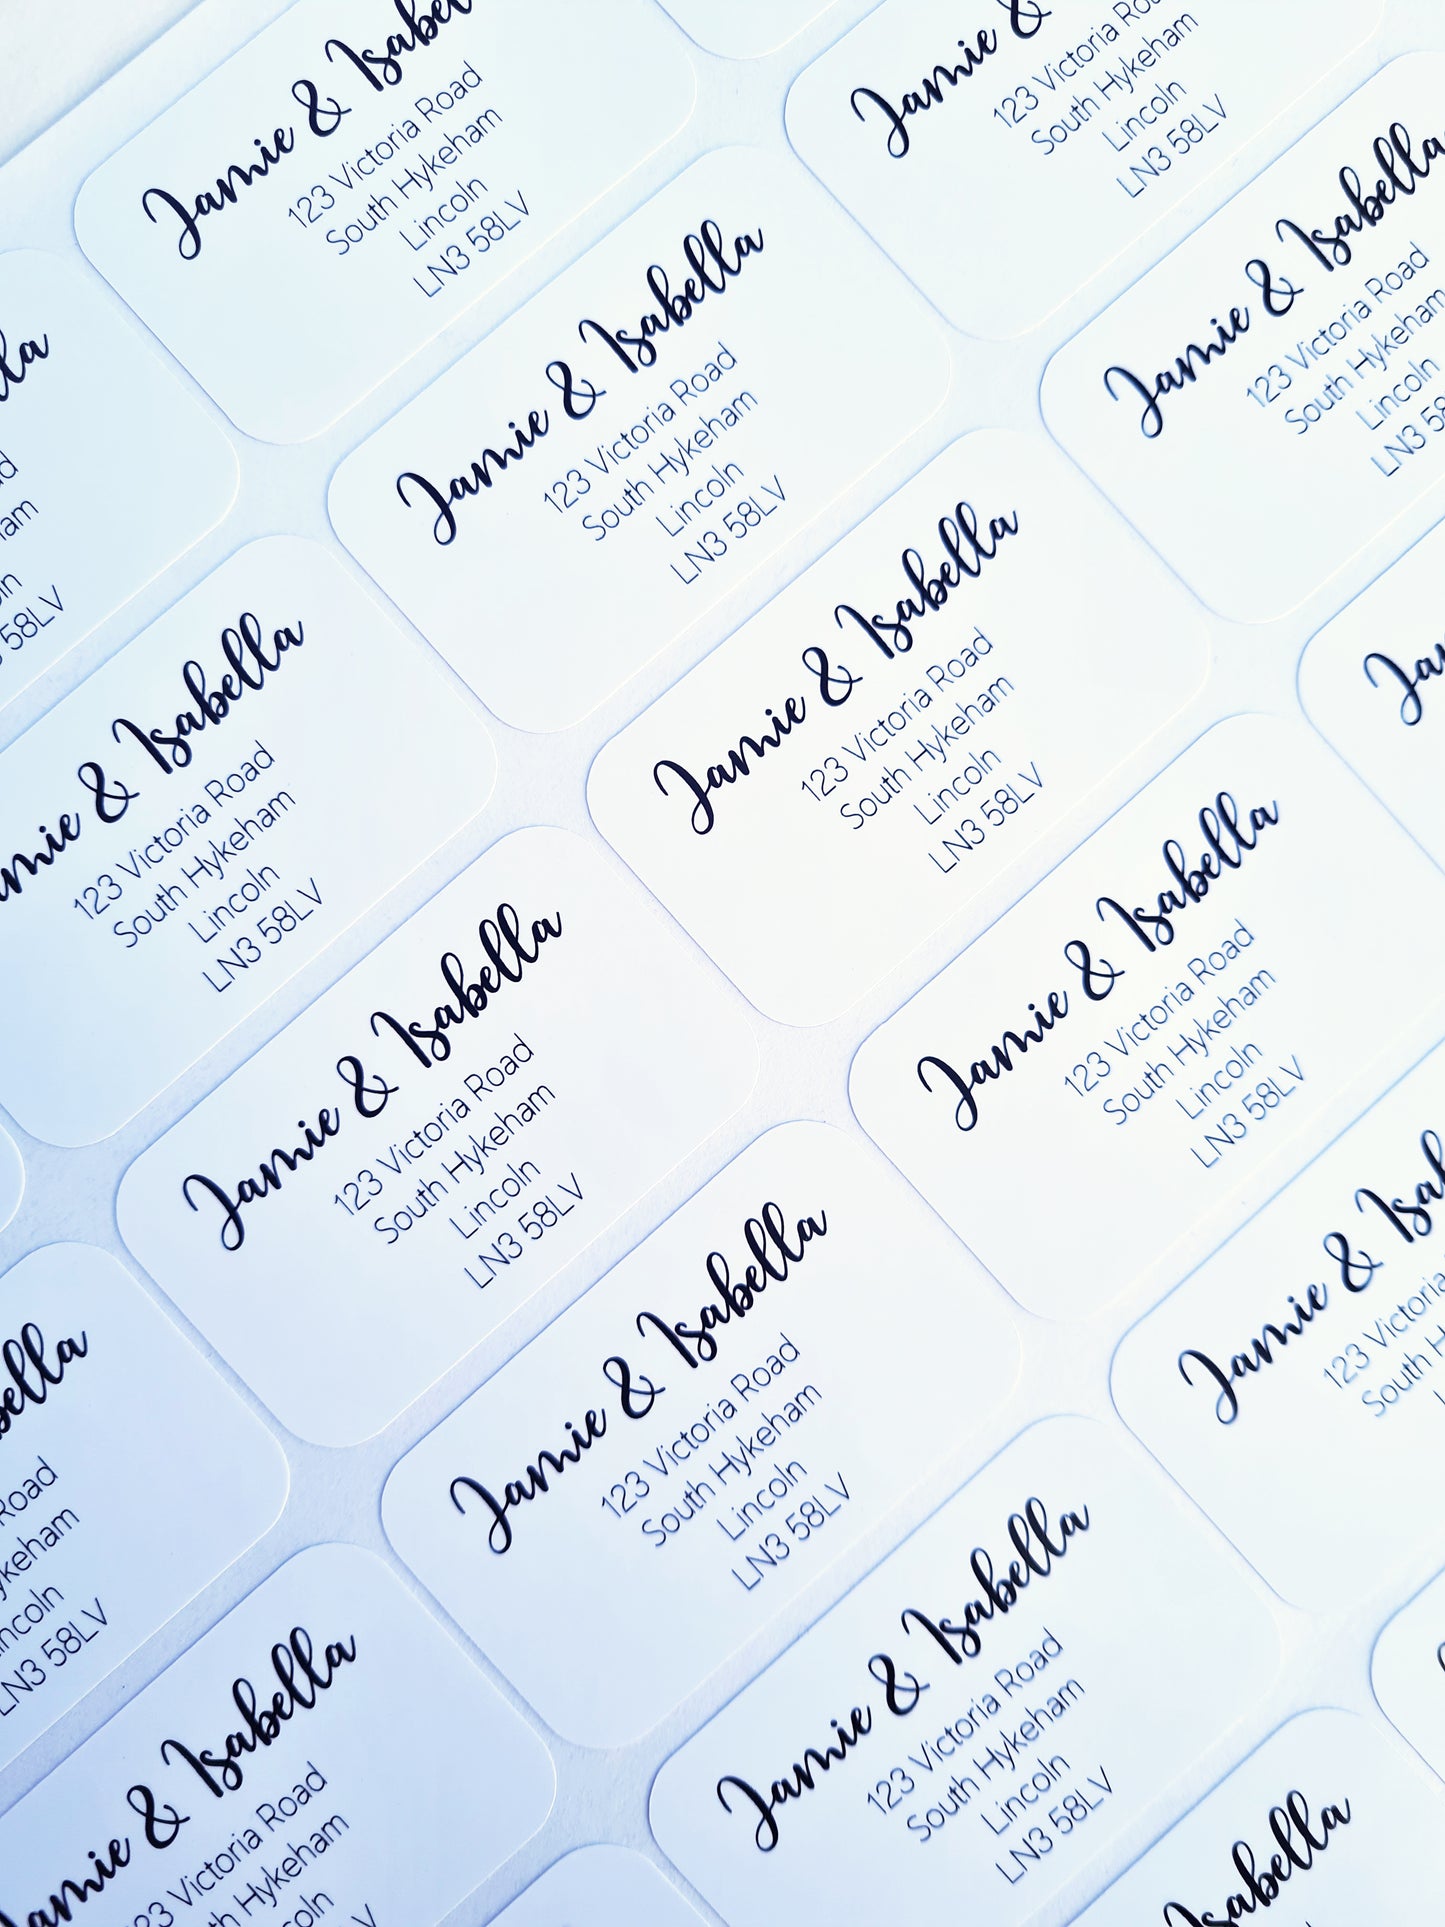 Jamie & Isabel
123 Victoria Road
South Hykeham
Lincoln
LN3 58LV
Jamie &
123 Victoria Roa
South Hykeham
Lincoln
LN3 58LV
Jamie & Isabella
123 Victoria Road
South Hykeham
Lincoln
LN3 58LV
Jamie & Isabella
123 Victoria Road
South Hykeham
Lincoln
LN3 58
lla
d
am
ln
58LV
Jamie & Isabella
123 Victoria Road
South Hykeham
Lincoln
LN3 58LV
amie & Isabella
123 Victoria Road
South Hykeham
Lincoln
LN3 58LV
Ja
Jamie & Isabella
123 Victoria Road
South Hykeham
Lincoln
LN3 58LV
Jamie & Isabella
123 Victoria Road
South Hykeham
Lincoln
LN3 58LV
Jamie & Isab
123 Victoria
South H
Jamie & Isabella
123 Victoria Road
South Hykeham
Lincoln
LN3 58LV
bella
Road
ykeham
ncoln
LN3 58LV
Jamie & Isabella
123 Victoria Road
South Hykeham
Lincoln
LN3 58LV
amie & Isabella
23 Victoria Road
th Hykeham
coln
V
sabella